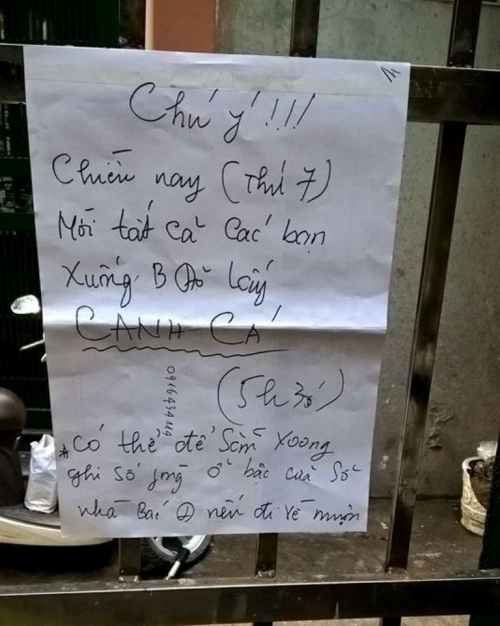 Chú ý !!!
Chiều nay (Thứ 7)
Mời tất cả các bạn
Xuống B lấy
CANH CÁ
(5h30')
* Có thể để Sẵn Xoong
ghi số phòng ở bậc cửa Sổ
nhà Bác nếu đi về muộn